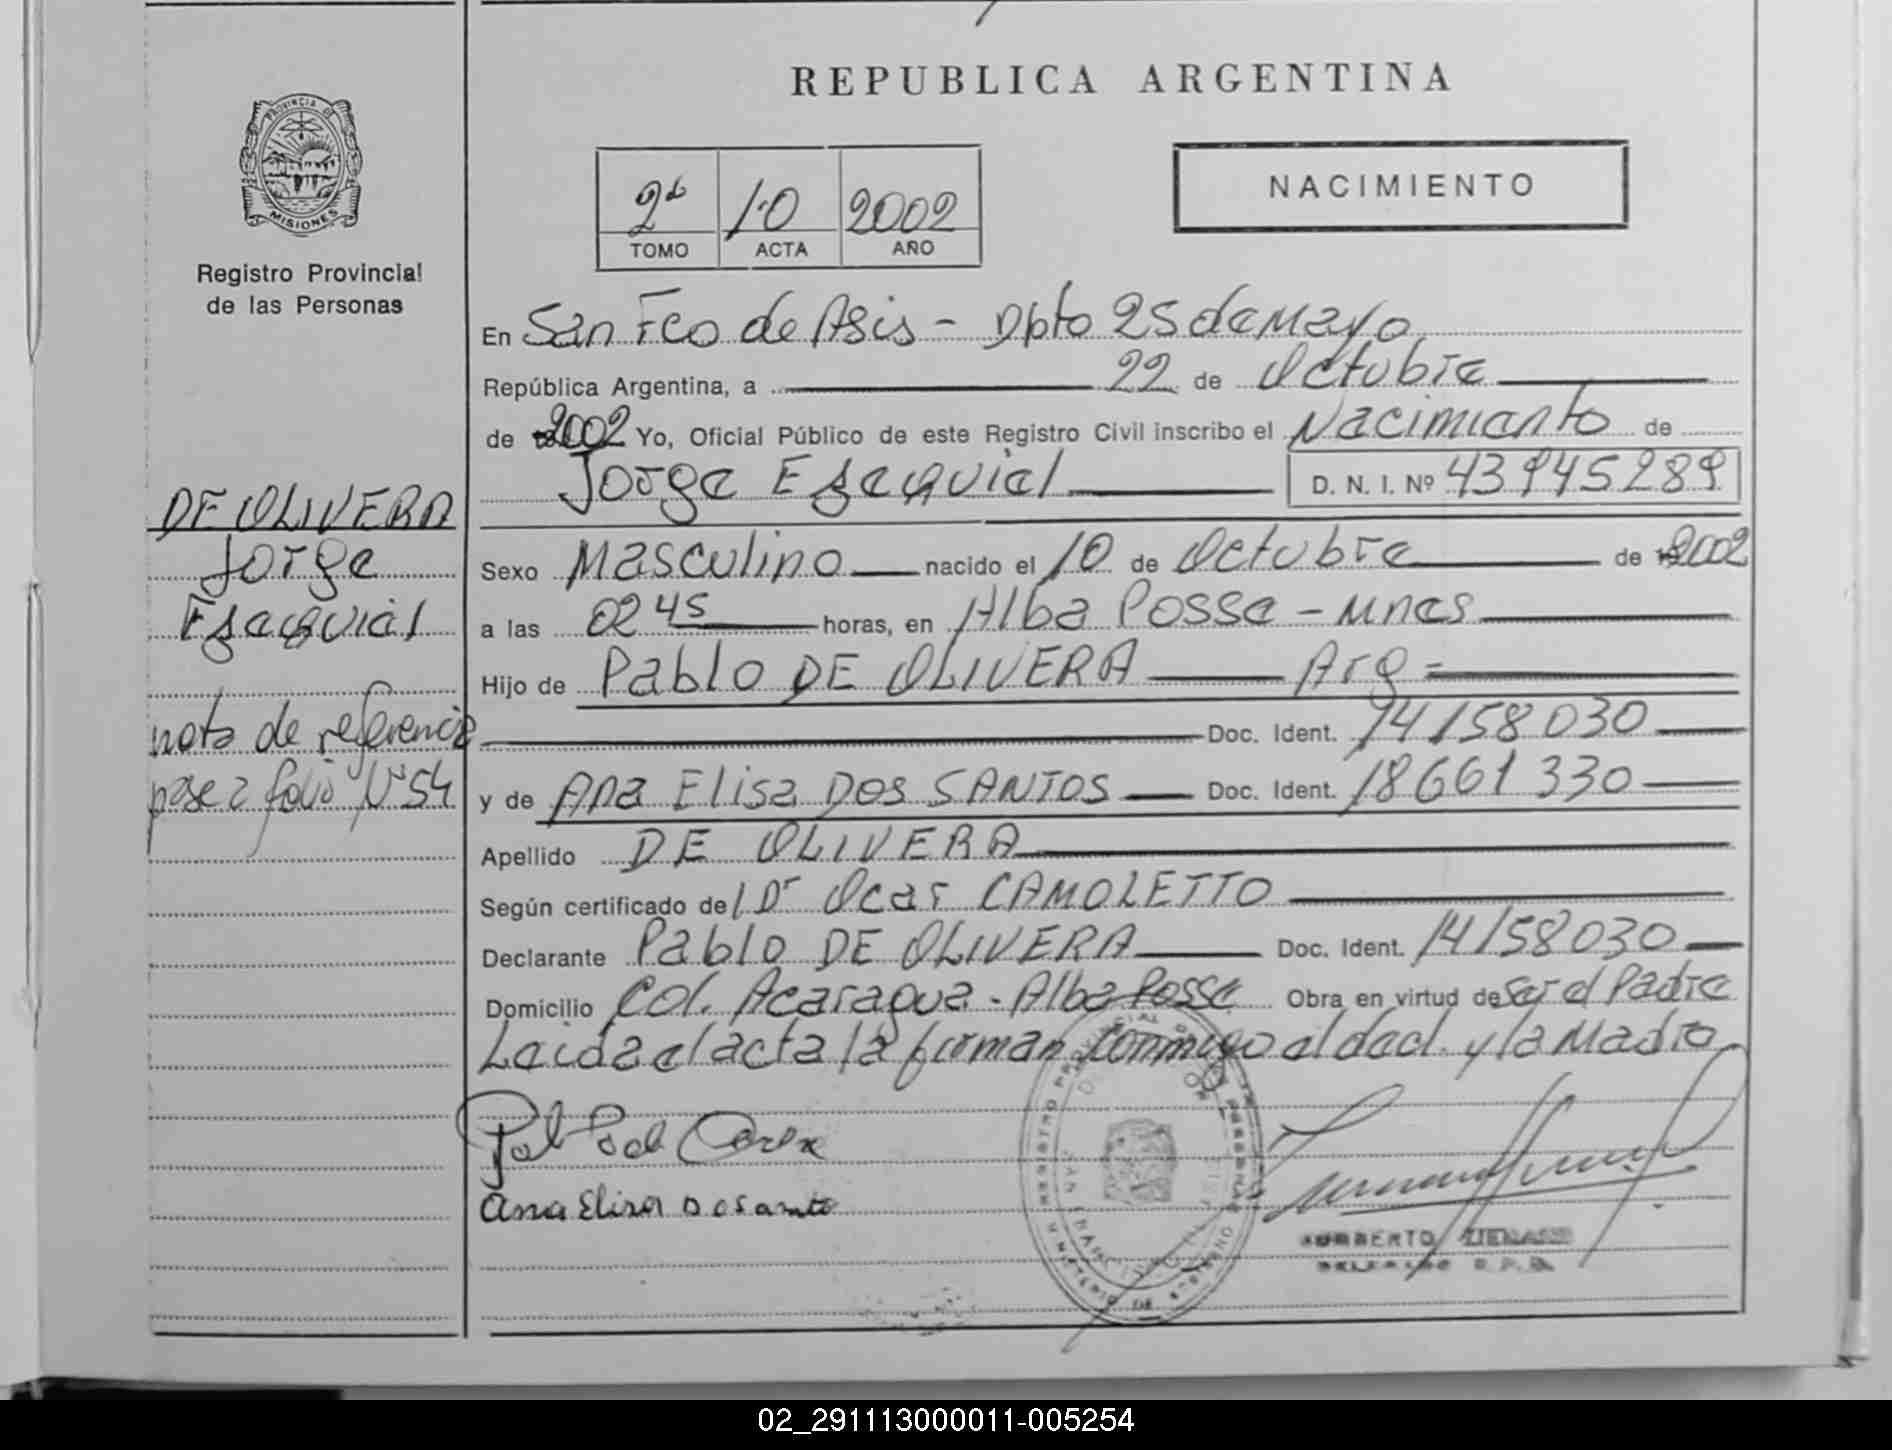 REPUBLICA ARGENTINA
PROVINCIA DE
MISIONES
Registro Provincial
de las Personas
2º 10 2002
TOMO ACTA AÑO
NACIMIENTO
En San Fco de Asis - Dpto 25 de Mayo
República Argentina, a 22 de Octubre
de 2002 Yo, Oficial Público de este Registro Civil inscribo el Nacimiento de
Jorge Esequiel D. N. I. Nº 43945289
DE OLIVERA
Jorge
Esequiel
nota de referencia
pase a folio Nº 54
Sexo Masculino nacido el 10 de Octubre de 2002
a las 02 45 horas, en Alba Posse - Mnes
Hijo de Pablo DE OLIVERA Arg =
Doc. Ident. 14158030
y de Ana Elisa DOS SANTOS Doc. Ident. 18661330
Apellido DE OLIVERA
Según certificado del Dr Ocar CAMOLETTO
Declarante Pablo DE OLIVERA Doc. Ident. 14158030
Domicilio Col. Acaragua - Alba Posse Obra en virtud de Ser el Padre
Leida el acta la firman conmigo el decl. y la Madre
Ana Elisa Dosanto
02_291113000011-005254